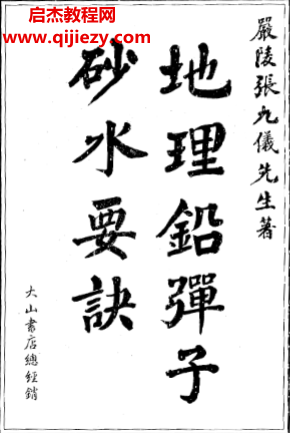 启杰易友网
www.qijieyy.com
嚴陵張九儀先生著
地理鉛彈子
砂水要訣
大山書店總經銷